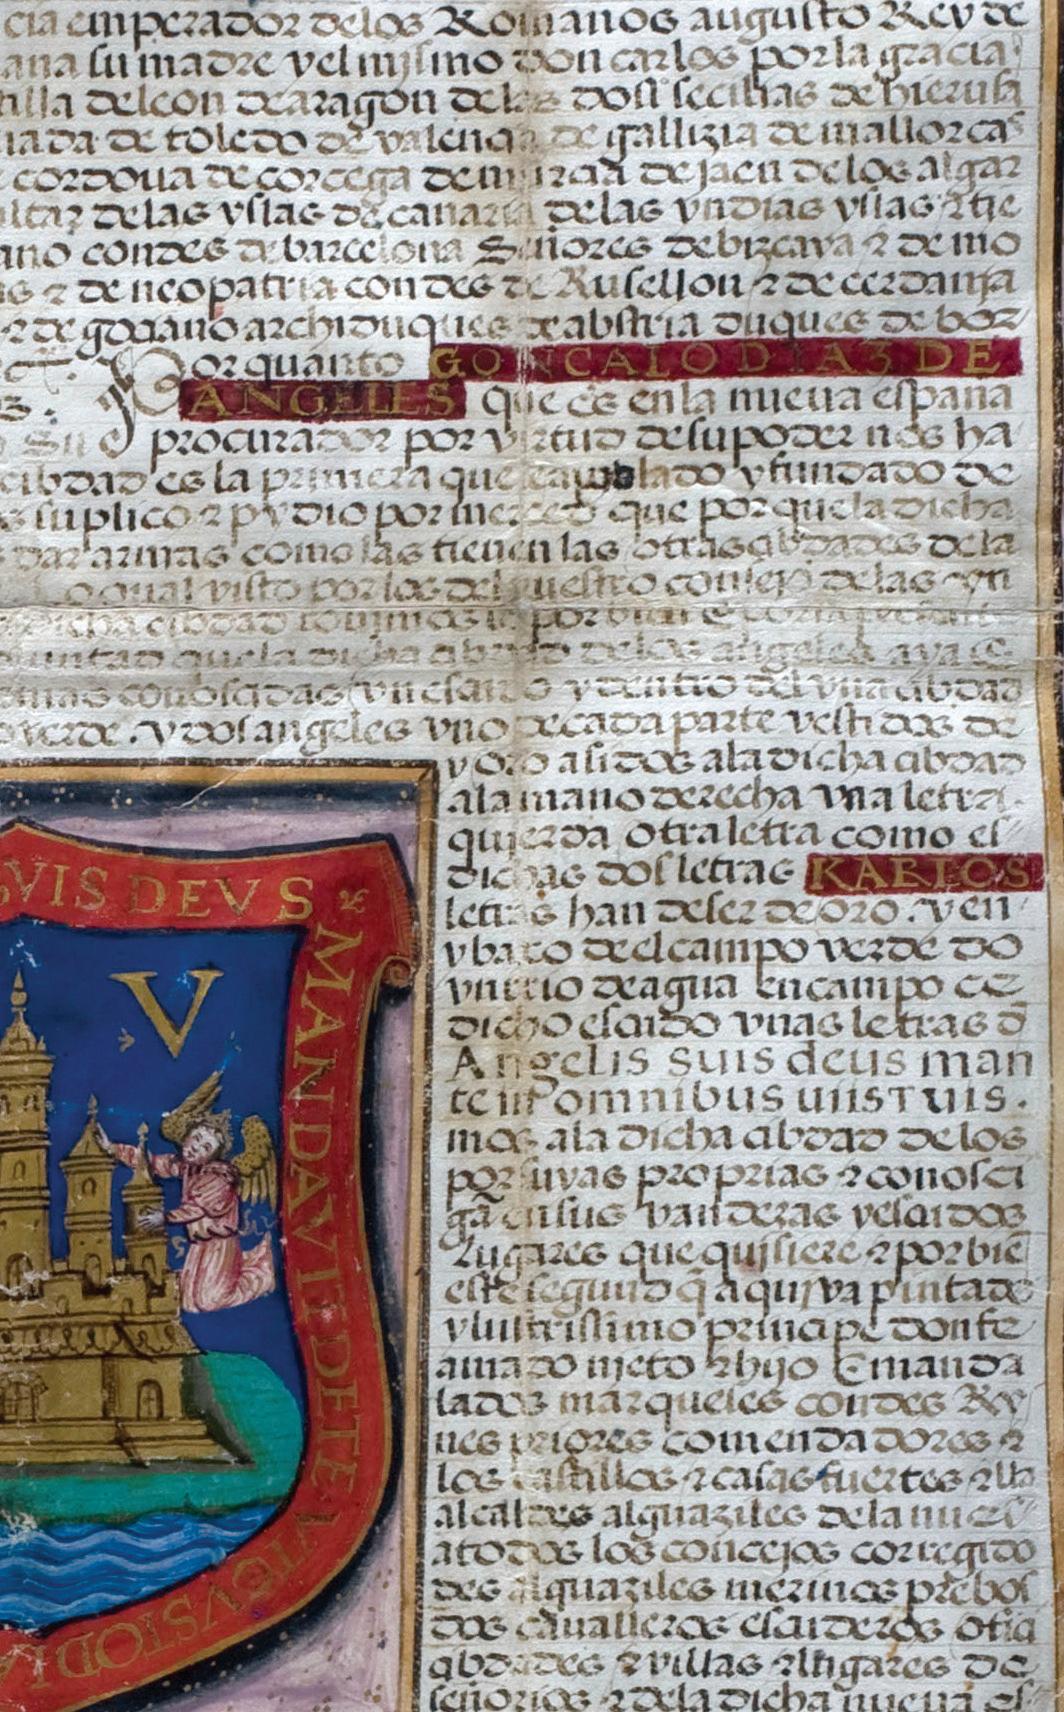 cia emperador delos Romanos augusto Rey de
ana su madre y el mismo don carlos por la gracia
tilla deleon de aragon de las dos secilias de hierusa
nada de toledo de valencia de gallizia de mallorcas
cordoua de corcega de murcia de jaen de los algar
altar de las yslas de canaria delas yndias yslas ⁊ tie
ano condes de barcelona Señores de bizcaya ⁊ de mo
as ⁊ de neopatria condes de Rusellon ⁊ de cerdania
⁊ de gociano archiduques de abstria duques de bor
Por quanto GONCALO DIAZ DE
ANGELES que es en la nueua españa
Su procurador por virtud de su poder nos ha
cibdad es la primera que poblado y fundado de
suplico ⁊ pydio por merced que por que la dicha
dar armas como las tienen las otras cibdades de la
lo qual visto por los del nuestro consejo de las yn
dicha cibdad touimos lo por bien E
luntad que la dicha cibdad de los angeles aya E
armas conoscidas vn escudo y dentro del vna cibdad
verde . y dos angeles vno de cada parte vestidos de
y oro asidos ala dicha cibdad
ala mano derecha vna letra
quierda otra letra como es
dichas dos letras KARLOS
letras han de ser de oro . y en
ybaxo de el campo verde do
vn rio de agua en campo ce
dicho escudo vnas letras q̄
Angelis suis deus man
te in omnibus viis tuis .
mos ala dicha cibdad de los
por suyas proprias ⁊ conosci
gā en sus vanderas y escudos
Lugares que quisiere ⁊ por biē
este segund q̄ aqui va pintado
yllustrissimo principe don fe
amado nieto ⁊ hijo E manda
lados marqueses condes Ry
nes priores comendadores ⁊
los castillos ⁊ casas fuertes ⁊ lla
alcaldes alguaziles de la nues
a todos los concejos corregido
des alguaziles merinos prebos
dos caualleros escuderos oficia
cibdades ⁊ villas ⁊ lugares de
señorios ⁊ dela dicha nueua es
SVIS DEVS MANDAVIT DE TE VT CVSTODIA
V